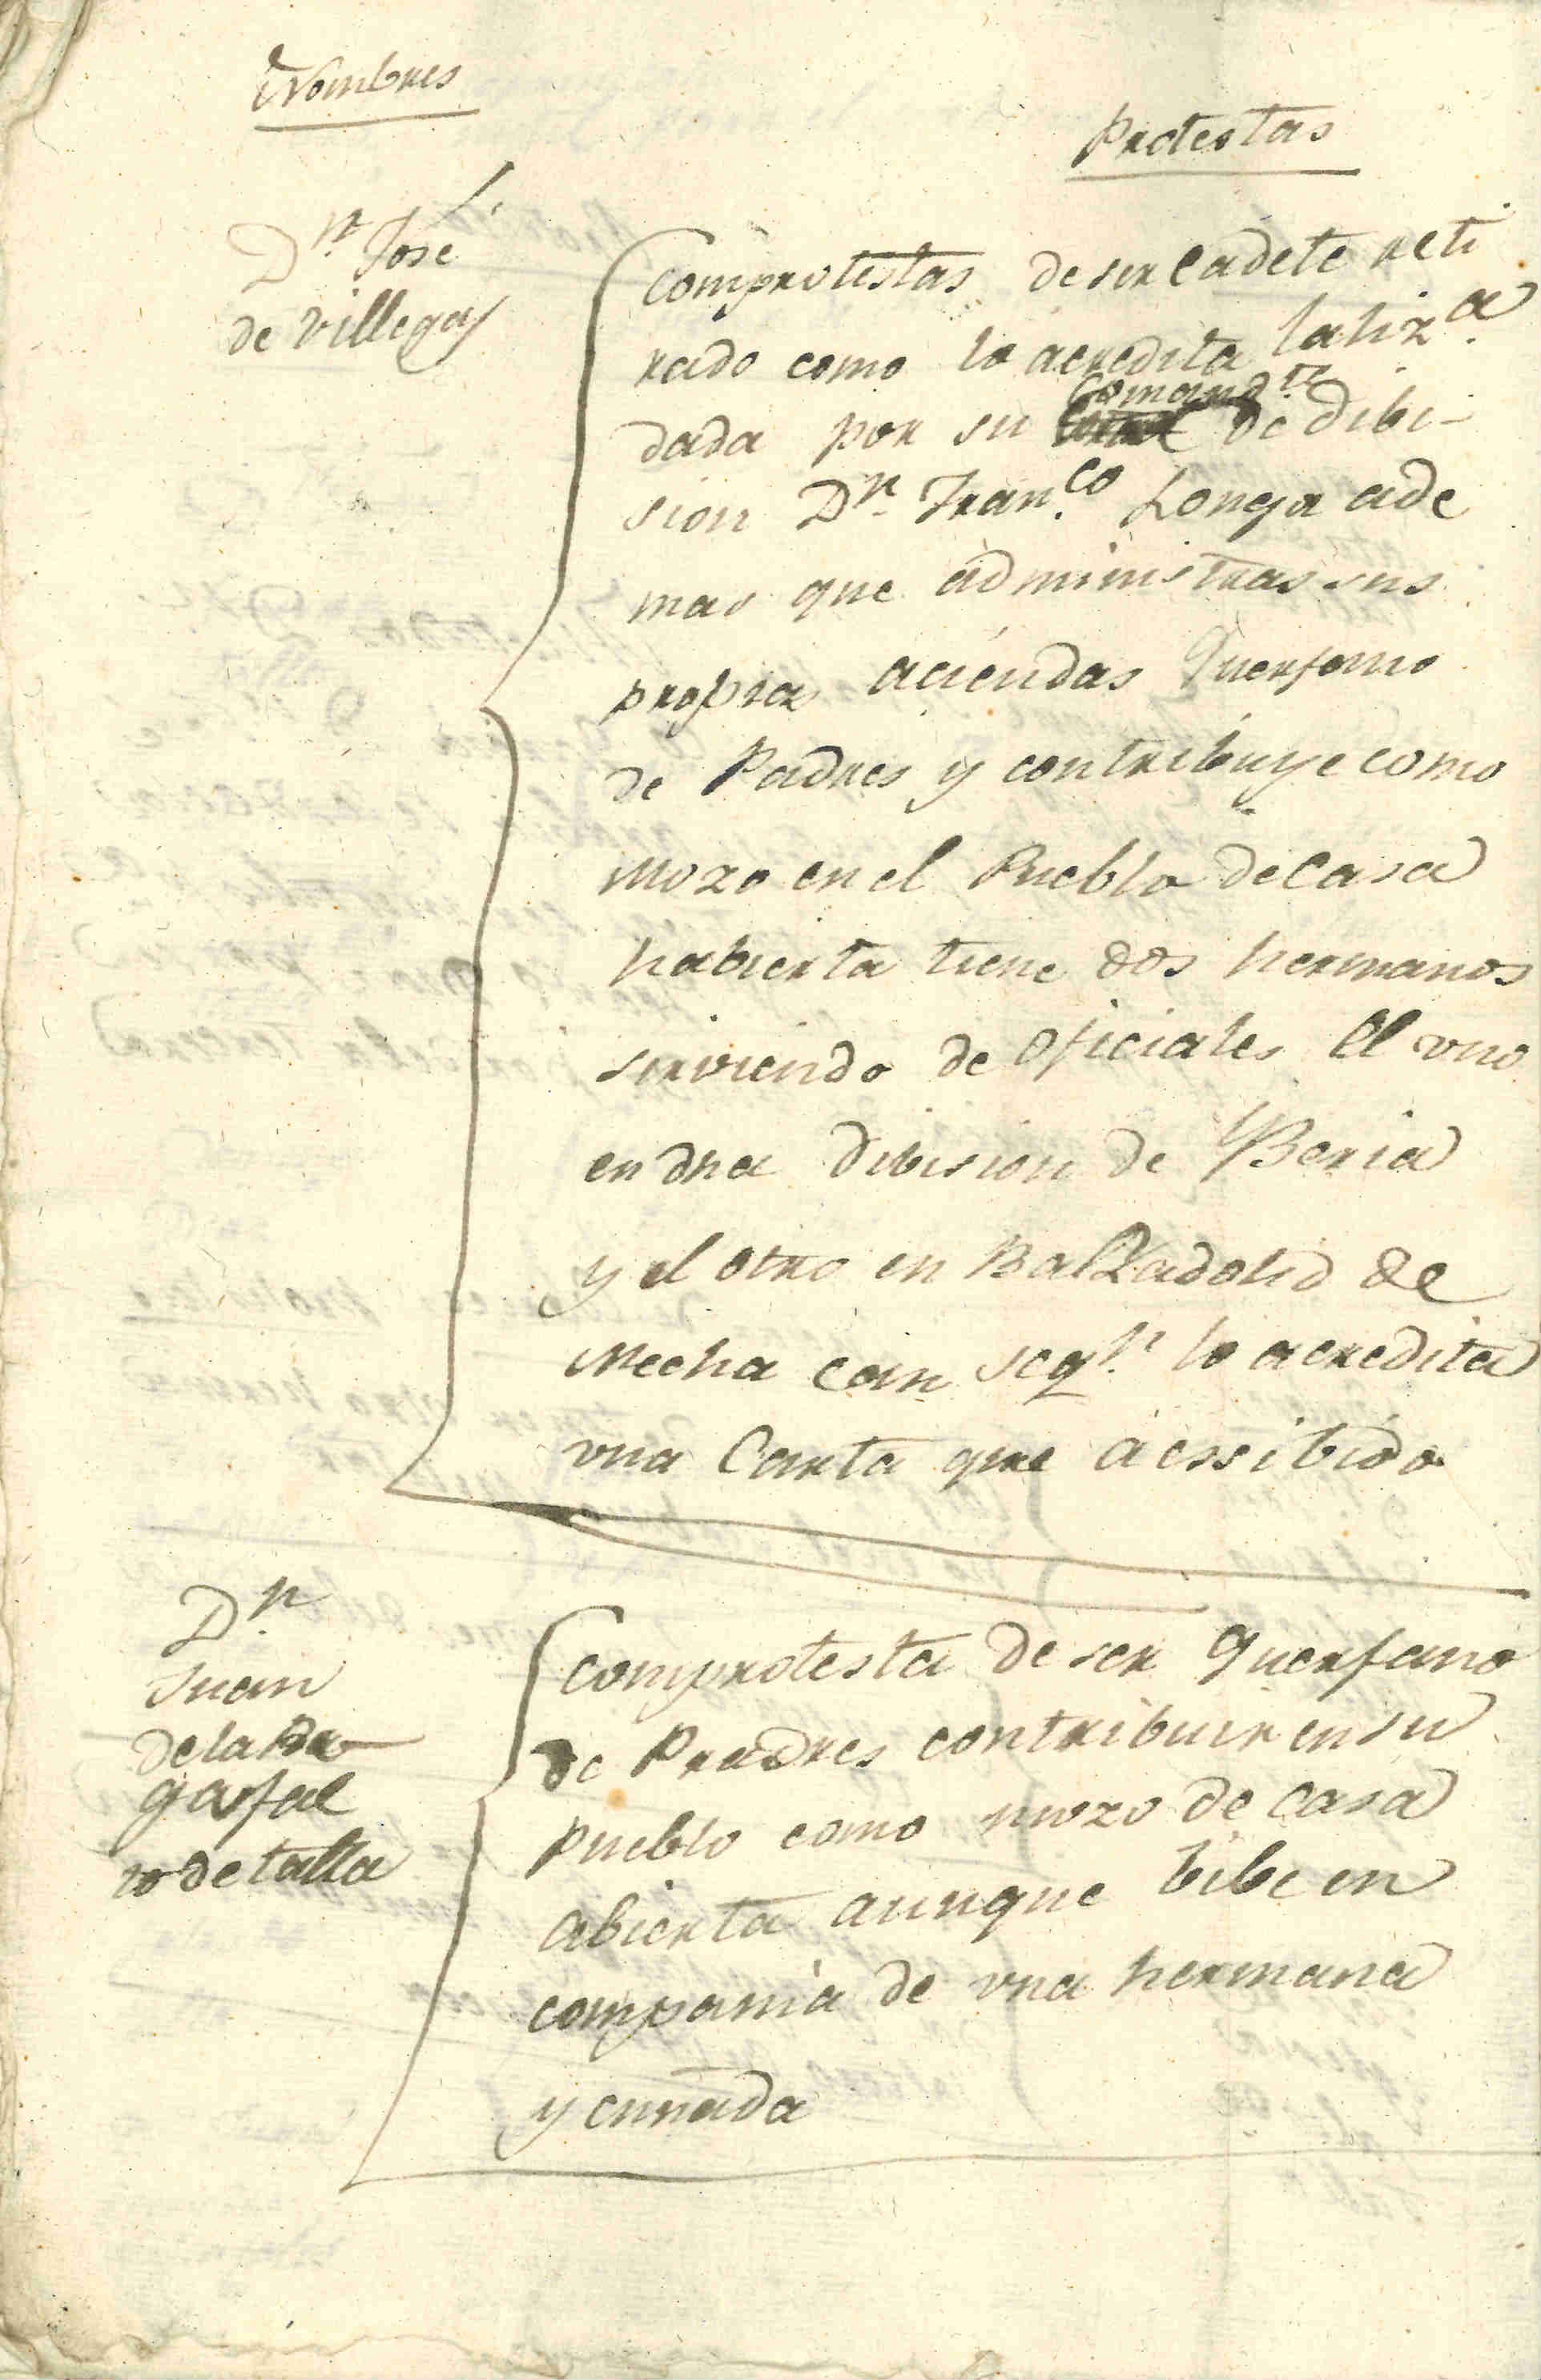 Nombres
Protestas
Dn. José
de Villegas
Comprotestas de ser Cadete reti
rado como lo acredita la liz.a
dada por su Comand.te de dibi-
sion Dn. Fran.co Longa ade
mas que administras sus
propias aciendas Querfono
de Padres y contribuye como
mozo en el Pueblo de Casa
habierta tiene dos hermanos
sirviendo de oficiales el uno
en dha dibision de Yberia
y el otro en Balladolid de
Mecha can segn. lo acredita
vna Carta que a essibido
Dn.
Juan
de la
gasfal
to de talla
Comprotesta de ser querfano
de Pradres contribuir en su
Pueblo como mozo de Casa
abierta aunque bibe en
compania de vna hermana
y cunada